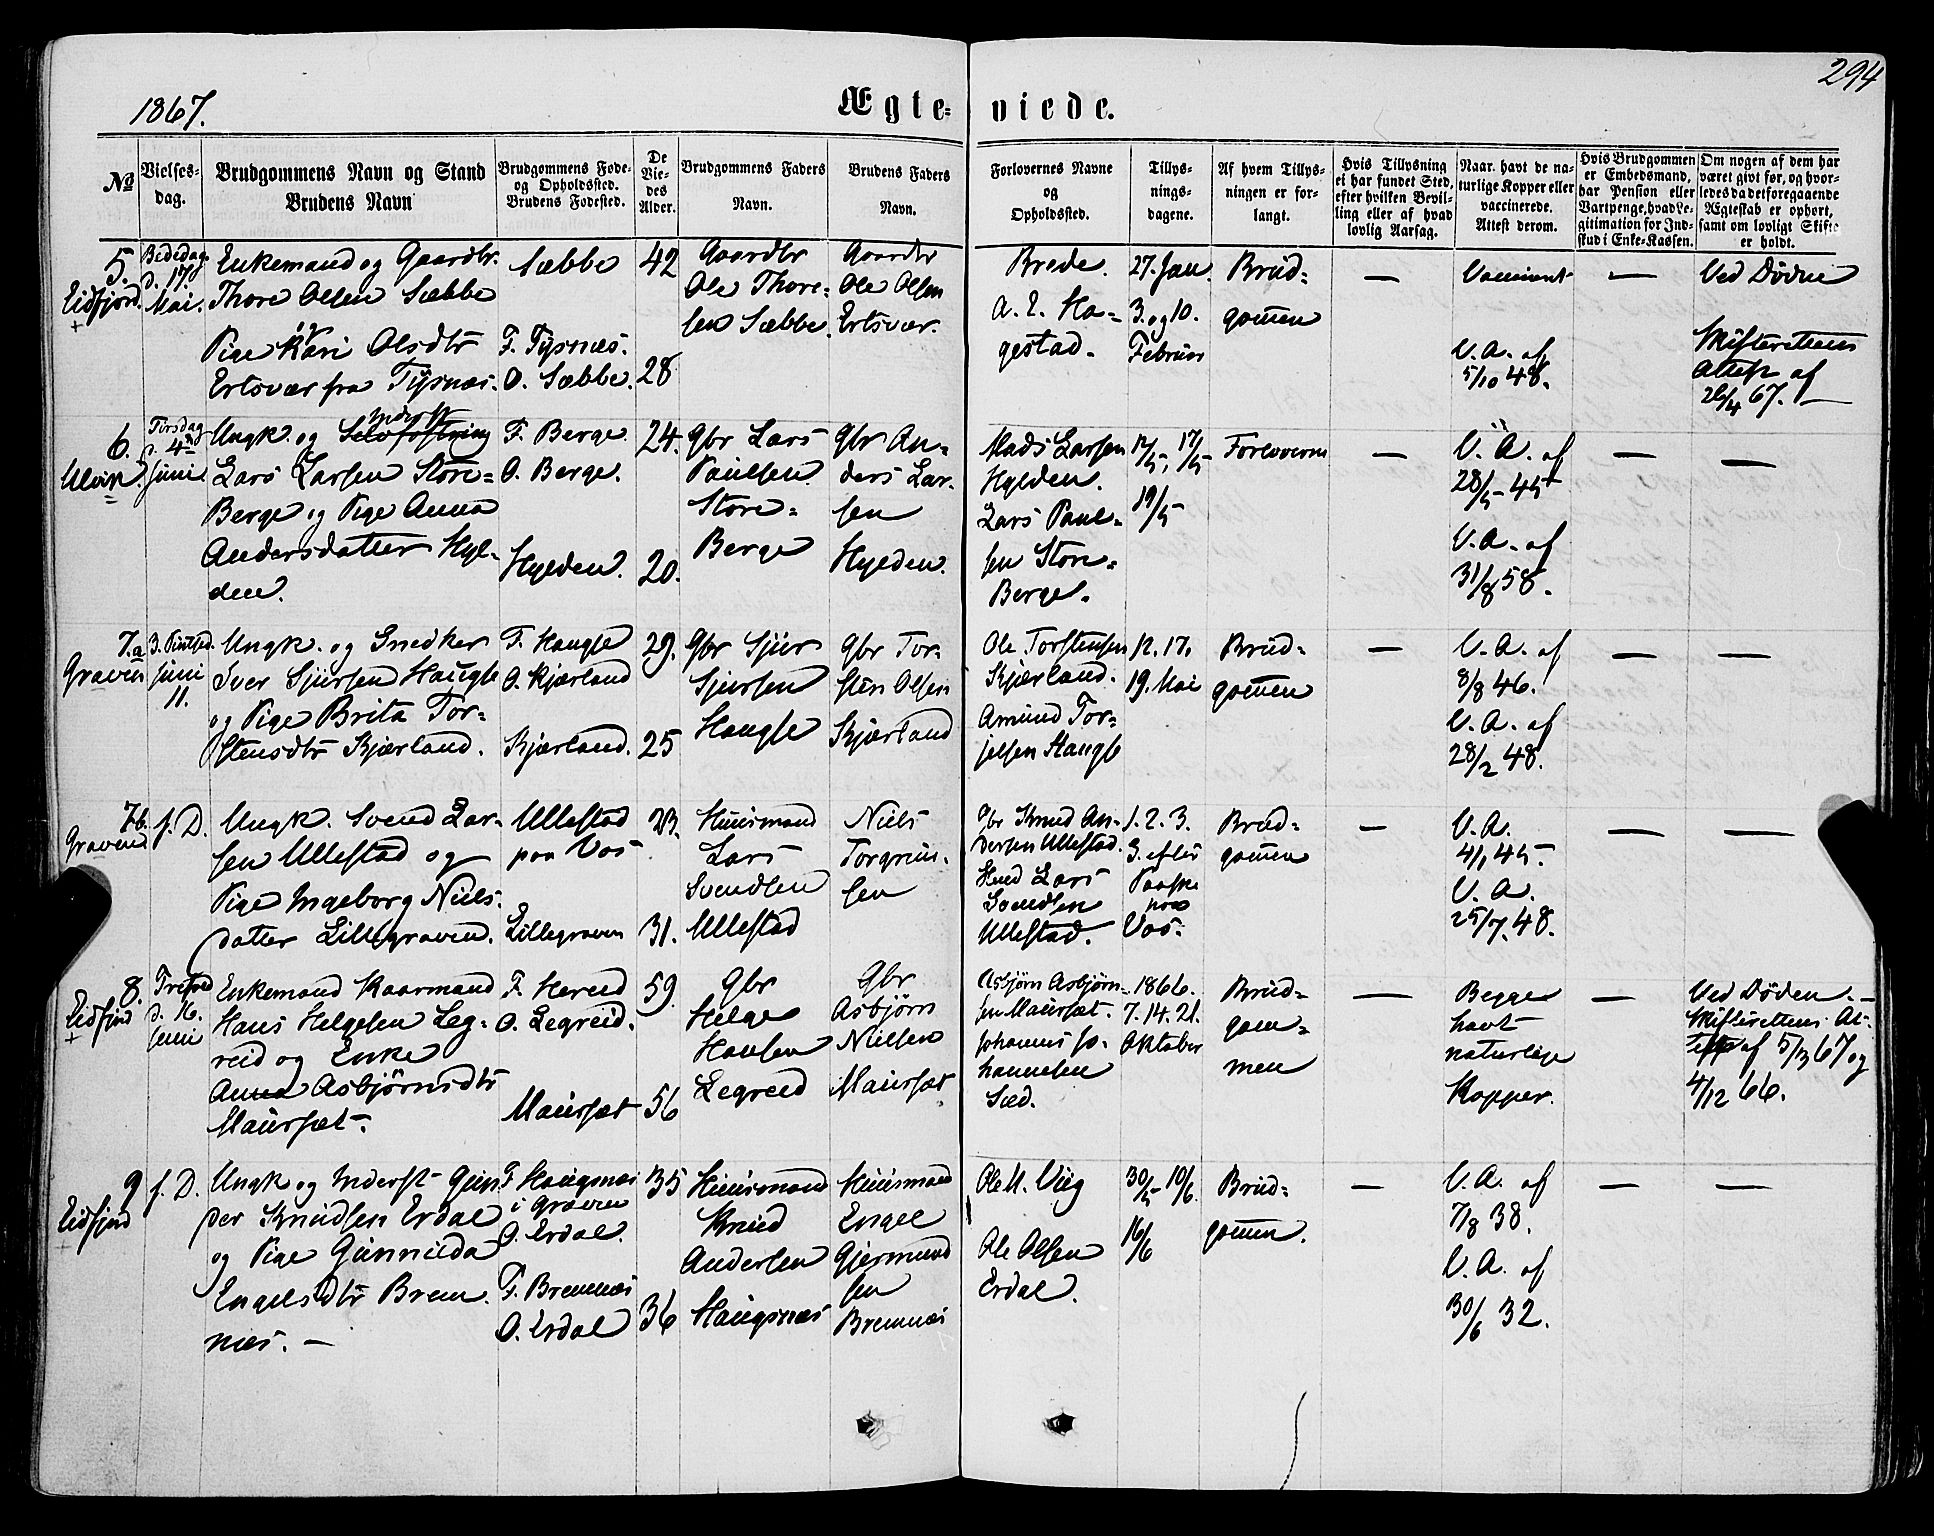 294
1867.
Ægte- viede.
No
Vielses-
dag.
Brudgommens Navn og Stand
Brudens Navn
Brudgommens Føde-
og Opholdssted.
Brudens Fødested.
De
Vie-
des
Alder.
Brudgommens Faders
Navn.
Brudens Faders
Navn.
Forlovernes Navne
og
Opholdssted.
Tillys-
nings-
dagene.
Af hvem Tillys-
ningen er for-
langt.
Hvis Tillysning
ei har fundet Sted,
efter hvilken Bevil-
ling eller af hvad
lovlig Aarsag.
Naar havt de na-
turlige Kopper eller
vaccinerede.
Attest derom.
Hvis Brudgommen
er Embedsmand,
har Pension eller
Vartpenge, hvad Le-
gitimation for Ind-
skud i Enke-Kassen.
Om nogen af dem har
været givt før, og hvor-
ledes da det foregaaende
Ægteskab er ophørt,
samt om lovligt Skifte
er holdt.
5.
Eidfjord.
+
Bededag
d. 17de
Mai.
Enkemand og Gaardbr.
Thore Olsen Sæbbe
Pige Kari Olsdtr
Ertsvær fra Tysnæs.
Sæbbe
F. Tysnæs.
O. Sæbbe.
42
28
Gaardbr
Ole Thore-
sen Sæbbe.
Gaardbr
Ole Olsen
Ertsvær.
Brede.
A. E. Ha-
gestad.
27. Jan.
3. og 10.
Februar
Brud-
gommen
—
Vaccinert
V. A. af
5/10 48.
—
Ved Døden
Skifterettens
Attest af
26/4 67. —
6.
Ulvik.
Tirsdag
d. 4de
Juni.
Ungk. og Selvfostring
Inderst
Lars Larsen Store-
Berge og Pige Anna
Andersdatter Hyl-
den.
F. Berge
O. Berge.
Hylden.
24.
20.
Gbr Lars
Paulsen
Store-
Berge
Gbr An-
ders Lar-
sen
Hylden.
Mads Larsen
Hylden.
Lars Paul-
sen Store-
Berge.
12/5, 17/5
19/5
Forloverne
—
V. A. af
28/5 45
V. A. af
31/8 58.
—
—
7.a
Graven
3. Pintsed.
Juni
11.
Ungk. og Snedker
Iver Sjursen Haugse
og Pige Brita Tor-
stensdtr Kjærland.
F. Haugse
O. Kjærland
Kjærland.
29.
25
Gbr Sjur
Sjursen
Haugse
Gbr Tor-
sten Olsen
Kjærland
Ole Torstensen
Kjærland.
Amund Tor-
jelsen Haugse
12. 17.
19. Mai
Brud-
gommen
—
V. A. af
8/8 46.
V. A. af
28/2 48.
—
—
7b.
Graven
s. D.
Ungk. Svend Lar-
sen Ullestad og
Pige Ingeborg Niels-
datter Lillegraven.
Ullestad
paa Vos
Lillegraven
23.
31.
Huusmand
Lars
Svendsen
Ullestad
Niels
Torgrim-
sen
Gbr Knud An-
dersen Ullestad.
Hmd Lars
Svendsen
Ullestad.
1. 2. 3.
S. efter
Paaske
paa
Vos.
Brud-
gommen
—
V. A.
4/1 45.
V. A.
25/7. 48.
—
—
8.
Eidfjord
+
Trefred
d. 16.
Juni
Enkemand Kaarmand
Hans Helgesen Leg-
reid og Enke
Anna Asbjørnsdtr
Maursæt.
F. Hereid
O. Legreid.
Maursæt
59.
56
Gbr
Helge
Hansen
Legreid
Gbr
Asbjørn
Nielsen
Maursæt
Asbjørn Asbjørn-
sen Maursæt.
Johannes Jo-
hannesen
Sæd.
1866.
7. 14. 21.
Oktober
Brud-
gom-
men
—
Begge
havt
naturlige
Kopper.
—
Ved Døden. —
Skifterettens At-
test af 5/13 67 og
4/12 66.
9
Eidfjord
+
s. D.
Ungk og Inderst Gun-
der Knudsen Erdal
og Pige Gunnilda
Engelsdtr Brem-
næs. —
F. Haugsnæs
i Graven
O. Erdal.
F. Bremnæs
O. Erdal
35
36
Huusmand
Knud
Andersen
Haugsnæs
Huusmand
Engel
Gjermund
sen
Bremnæs
Ole M. Viig
Ole Olsen
Erdal.
30/5 10/6.
16/6
Brud-
gommen.
—
V. A. af
7/8 38.
V. A. af
30/6 32.
—
—